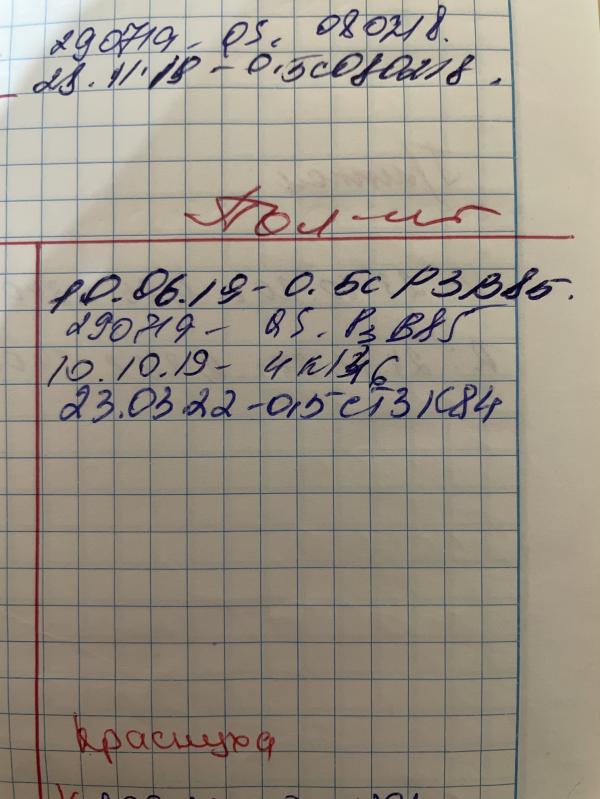 290719 - 05. 080218.
28.11.19 - 0.5с080218.
Пол-ит
10.06.19 - 0.5с Р3В85.
290719 - 05. Р3В85
10.10.19 - 4к
23.03.22 - 0,5 с Т3К84
Краснуха